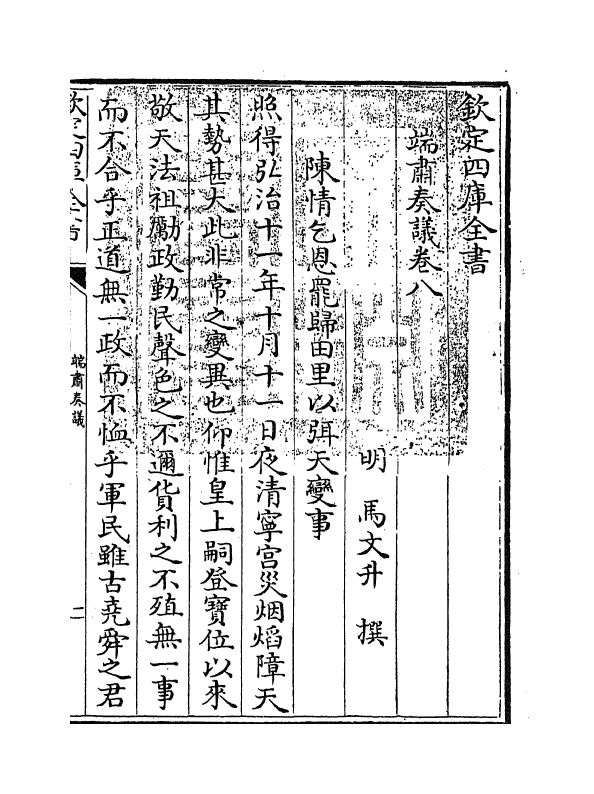 欽定四庫全書
端肅奏議卷八
明 馬文升 撰
陳情乞恩罷歸田里以弭天變事
照得弘治十一年十月十一日夜清寧宫災烟熖障天
其勢甚大此非常之變異也仰惟皇上嗣登寶位以來
敬天法祖勵政勤民聲色之不邇貨利之不殖無一事
而不合乎正道無一政而不恤乎軍民雖古堯舜之君
欽定四庫全書
端肅奏議